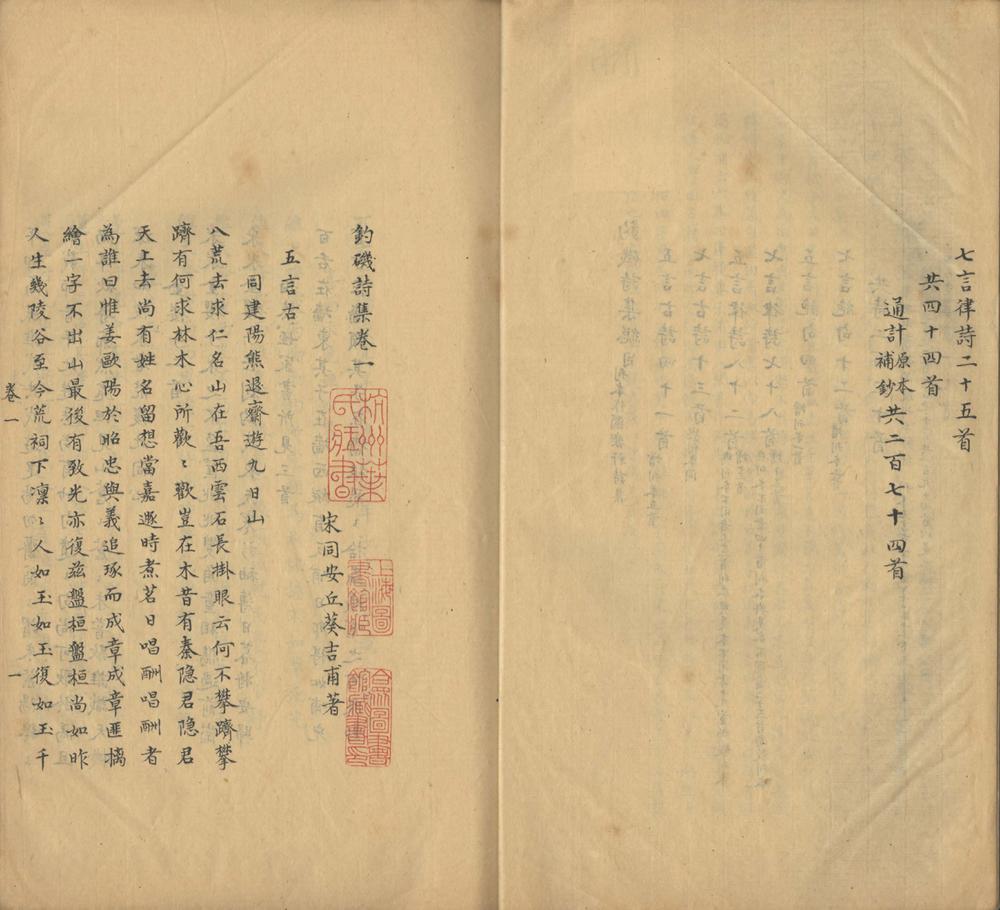 七言律詩二十五首
共四十四首
通計原本補鈔共二百七十四首
釣磯詩集卷一
宋同安丘葵吉甫著
五言古
同建陽熊退齋遊九日山
八荒去求仁名山在吾西雲石長掛眼云何不攀躋攀
躋有何求林木心所歡〻歡豈在木昔有秦隐君隐君
天上去尚有姓名留想當嘉遯時煮茗日唱酬唱酬者
為誰曰惟姜歐陽於昭忠與義追琢而成章成章匪摛
繪一字不出山最後有致光亦復茲盤桓盤桓尚如昨
人生幾陵谷至今荒祠下凛〻人如玉如玉復如玉千
卷一
一
杭州葉氏藏書
上海圖書館藏
合眾圖書館藏書印